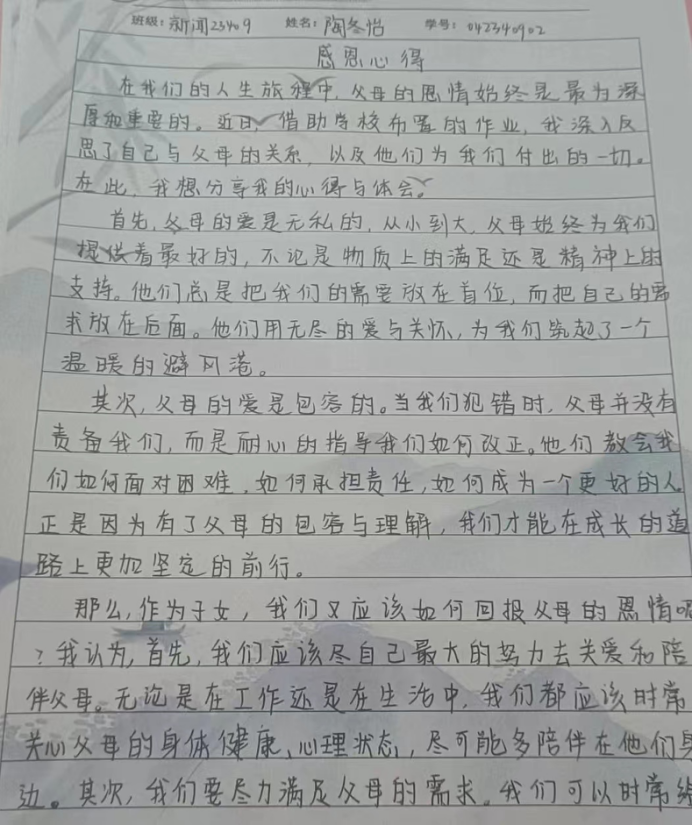 班级：新闻23409 姓名：陶冬怡 学号：042340902
感恩心得
在我们的人生旅程中，父母的恩情始终是最为深
厚和重要的。近日，借助学校布置的作业，我深入反
思了自己与父母的关系，以及他们为我们付出的一切。
在此，我想分享我的心得与体会。
首先，父母的爱是无私的，从小到大，父母始终为我们
提供着最好的，不论是物质上的满足还是精神上的
支持。他们总是把我们的需要放在首位，而把自己的需
求放在后面。他们用无尽的爱与关怀，为我们筑起了一个
温暖的避风港。
其次，父母的爱是包容的。当我们犯错时，父母并没有
责备我们，而是耐心的指导我们如何改正。他们教会我
们如何面对困难，如何承担责任，如何成为一个更好的人
正是因为有了父母的包容与理解，我们才能在成长的道
路上更加坚定的前行。
那么，作为子女，我们又应该如何回报父母的恩情呢
？我认为，首先，我们应该尽自己最大的努力去关爱和陪
伴父母。无论是在工作还是在生活中，我们都应该时常
关心父母的身体健康、心理状态，尽可能多陪伴在他们身
边。其次，我们要尽力满足父母的需求。我们可以时常给